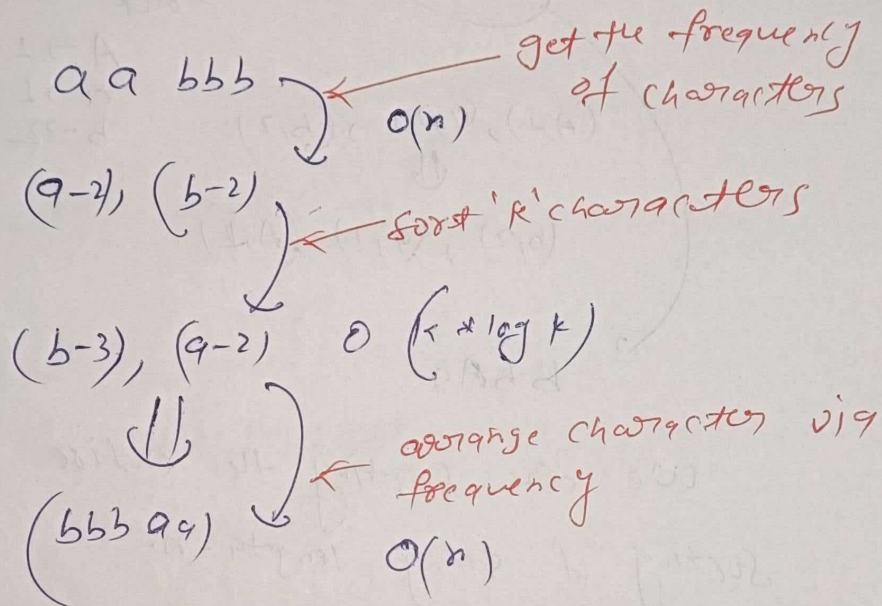 get the frequency
of characters
aa bbb
O(n)
(a-2), (b-2)
sort 'k' characters
(b-3), (a-2) O (k * log k)
arrange character via
frequency
(bbb aa)
O(n)